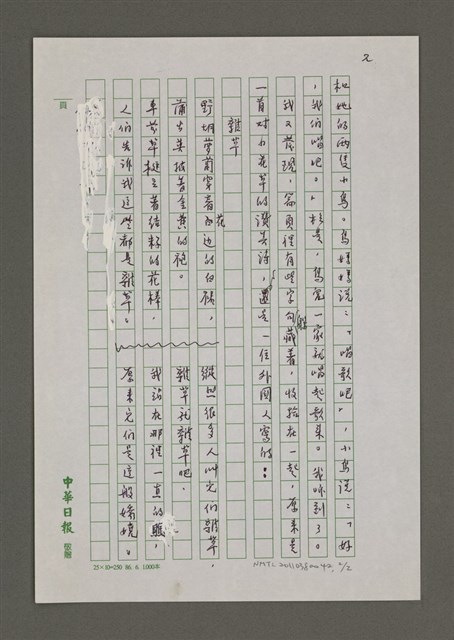 2
和她的兩隻小鳥。鳥媽媽說：「唱歌吧」，小鳥說：「好
，我們唱吧。」於是，鳥兒一家就唱起歌來。我聽到了。
我又發現，扉頁裡有些字句躲藏著，收拾在一起，原來是
一首對小花草的讚美詩，還是一位外國人寫的：
雜草
野胡蘿蔔穿著花邊的白領，
蒲公英披著金黃的袍。
車前草挺立著結籽的花棒，
人們告訴我這些都是雜草。
縱然很多人叫它們雜草，
雜草就雜草吧。
我站在那裡一直的瞧，
原來它們是這般嬌嬈。
頁
中華日報
敬贈
25×10=250 86. 6. 1,000本
NMTL 20110380042, 2/2